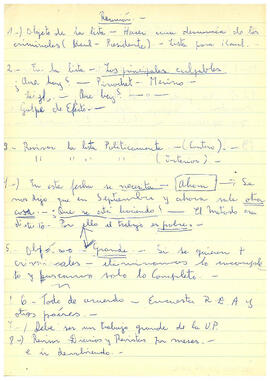 Reunión. -
1-) Objeto de la lista - Hacer una denuncia de los
criminales (Paul - Presidente) - Lista para Kand.
2.- En la lista - Los principales culpables
¿Que hay? - Pinochet - Merino -
Leigh, - Que hay? -
Golpe de Efecto. -
3.- Revisar la lista Políticamente - (Centro). -
" " " " (Interior) -
4-) En esta fecha se necesitan - Ahora - Se
nos dijo que en Septiembre y ahora sale otra
cosa - ¿Que se está haciendo? - El Método
Por ello el trabajo es pobre. -
5. grande - Si se quieren
criminales - eliminamos lo incomple
to y buscamos solo lo Completo. -
6 - Todo de acuerdo - Encuesta R.D.A y
otros países. -
7 - Debe ser un trabajo grande de la U.P.
8-) Revisar Diarios y Revistas por meses. -
e ir